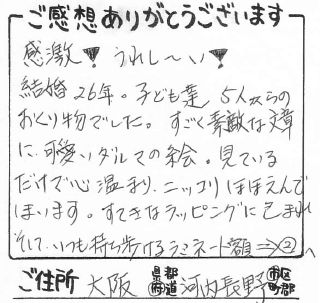 ご感想ありがとうございます
感激! うれし〜い!
結婚26年。子ども達 5人からの
おくり物でした。すごく素敵な文章
に、可愛いダルマの絵。見ている
だけで心温まり、ニッコリほほえんで
しまいます。すてきなラッピングに包まれ
そして、いつも持ち歩けるラミネート額⇒②へ
ご住所 大阪 都道府県 河内長野 市区町郡